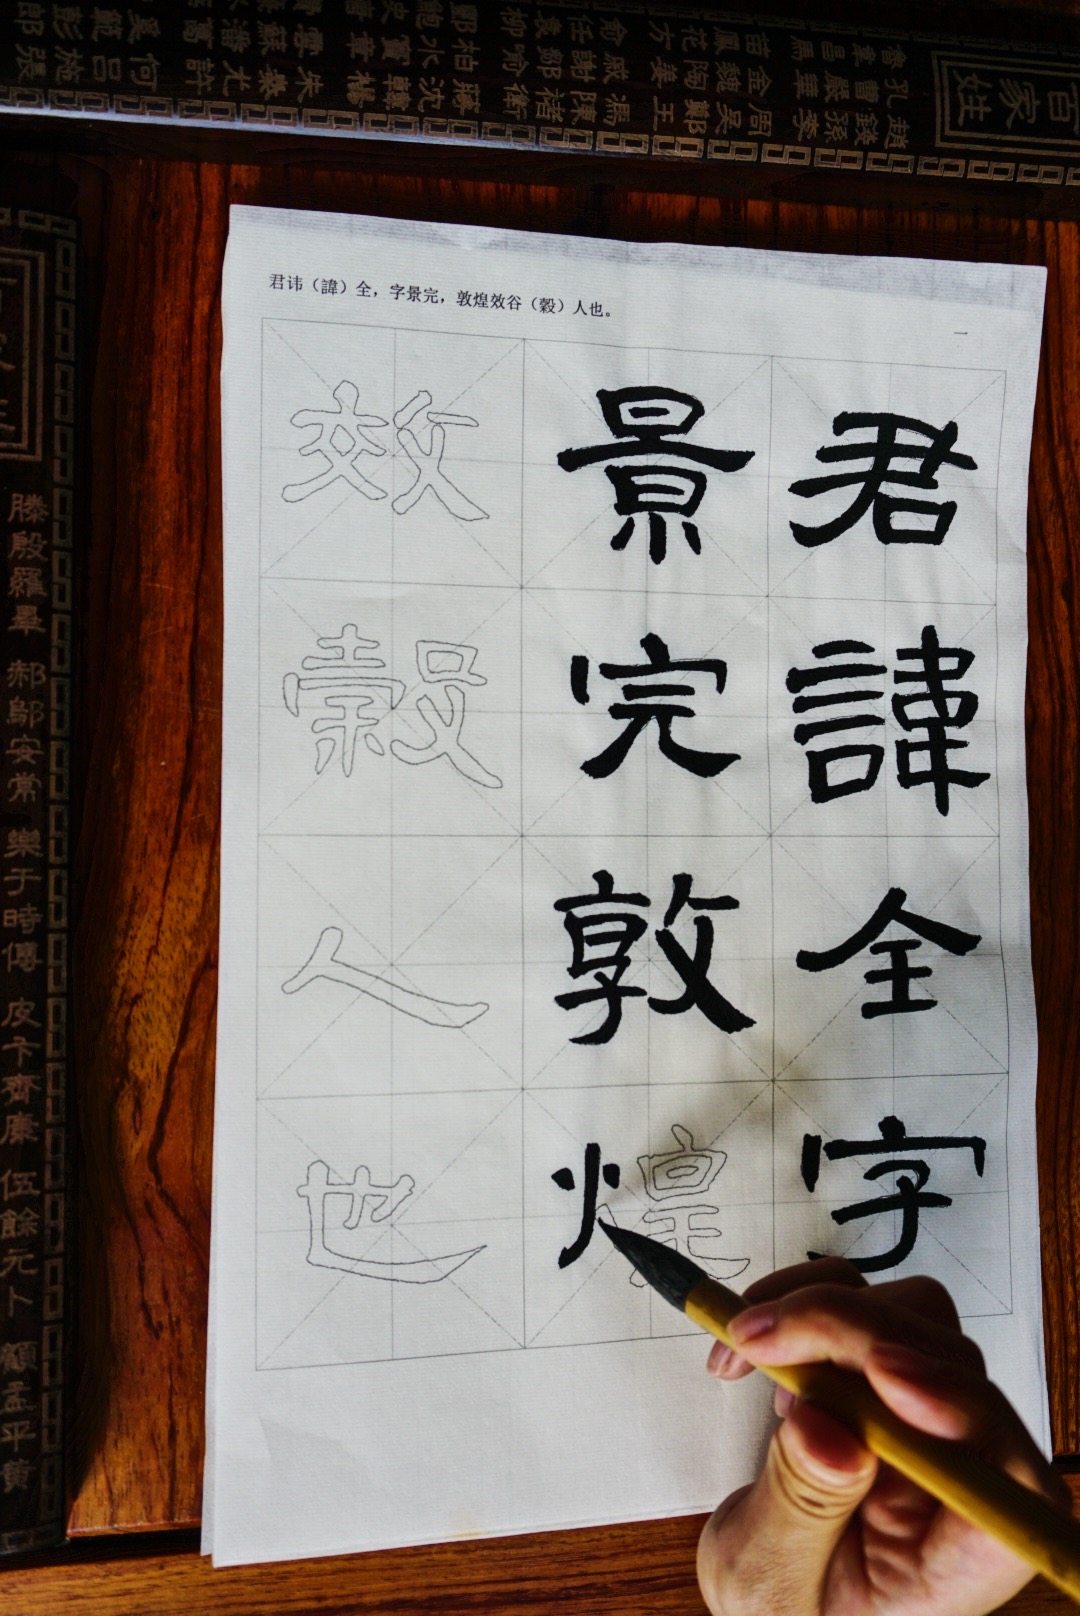 百家姓
魯韋昌馬 苗鳳花方 俞任袁柳 酆鮑史
孔曹嚴華 金魏陶姜 戚謝鄒喻 柏水竇章 雲蘇潘葛 奚范彭郎
趙錢孫李 周吳鄭王 馮陳褚衛 蔣沈韓楊 朱秦尤許 何呂施張
君讳（諱）全，字景完，敦煌效谷（榖）人也。
一
君諱全字
景完敦煌
效穀人也
滕殷羅畢 郝鄔安常 樂于時傅 皮卞齊康 伍餘元卜 顧孟平黃